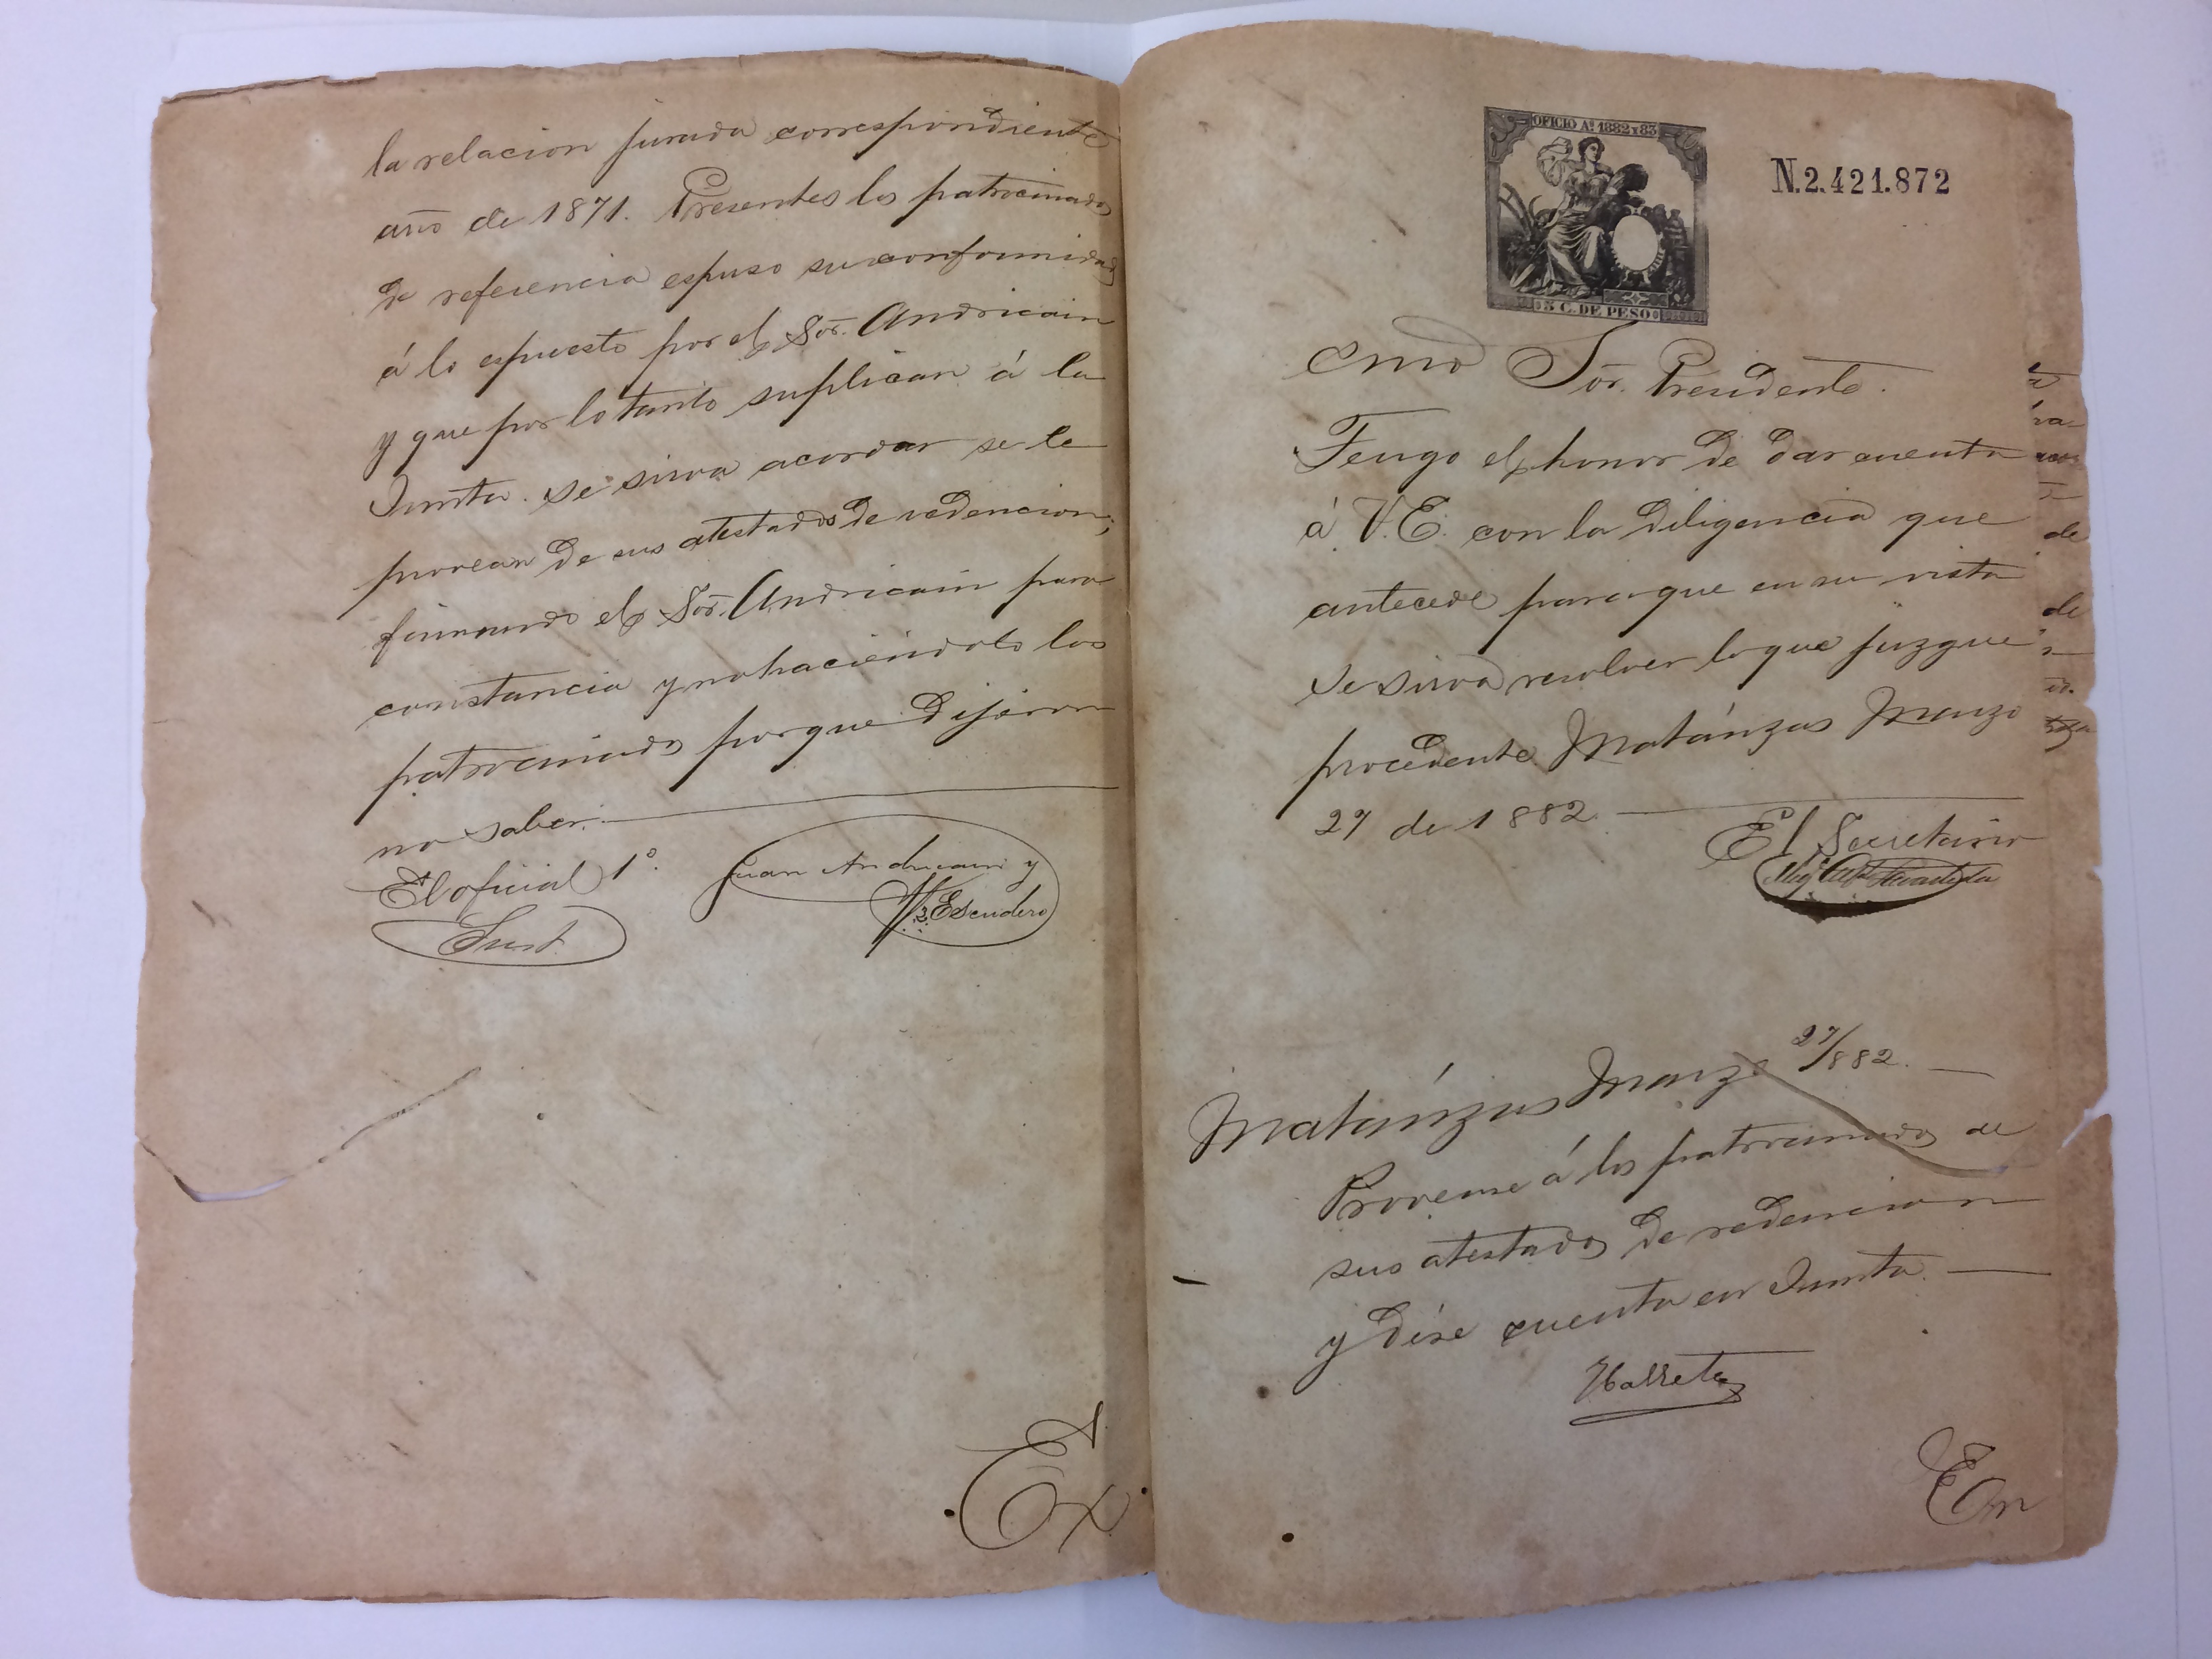 la relacion jurada correspondiente
año de 1871. Presentes los patrocinados
de referencia espuso su conformidad
á lo espuesto por el Sor. Andricain
y que por lo tanto suplican á la
Junta se sirva acordar se le
provean de sus atestados de redencion;
firmando el Sor. Andricain para
constancia y no haciéndolo los
patrocinados porque dijeron
no saber.
El oficial 1º.
Juan Andricain y
Escudero
Ex
OFICIO Aº 1882 Y 83
5 C. DE PESO
N.2.421.872
Cmo Sor. Presidente.
Tengo el honor de dar cuenta
á V.E. con la diligencia que
antecede para que en su vista
se sirva resolver lo que juzgue
procedente. Matánzas Marzo
27 de 1882.
El Secretario
Matánzas Marzo 27/882.
Provease á los patrocinados de
sus atestados de redencion
y dése cuenta en Junta.
En
de
de